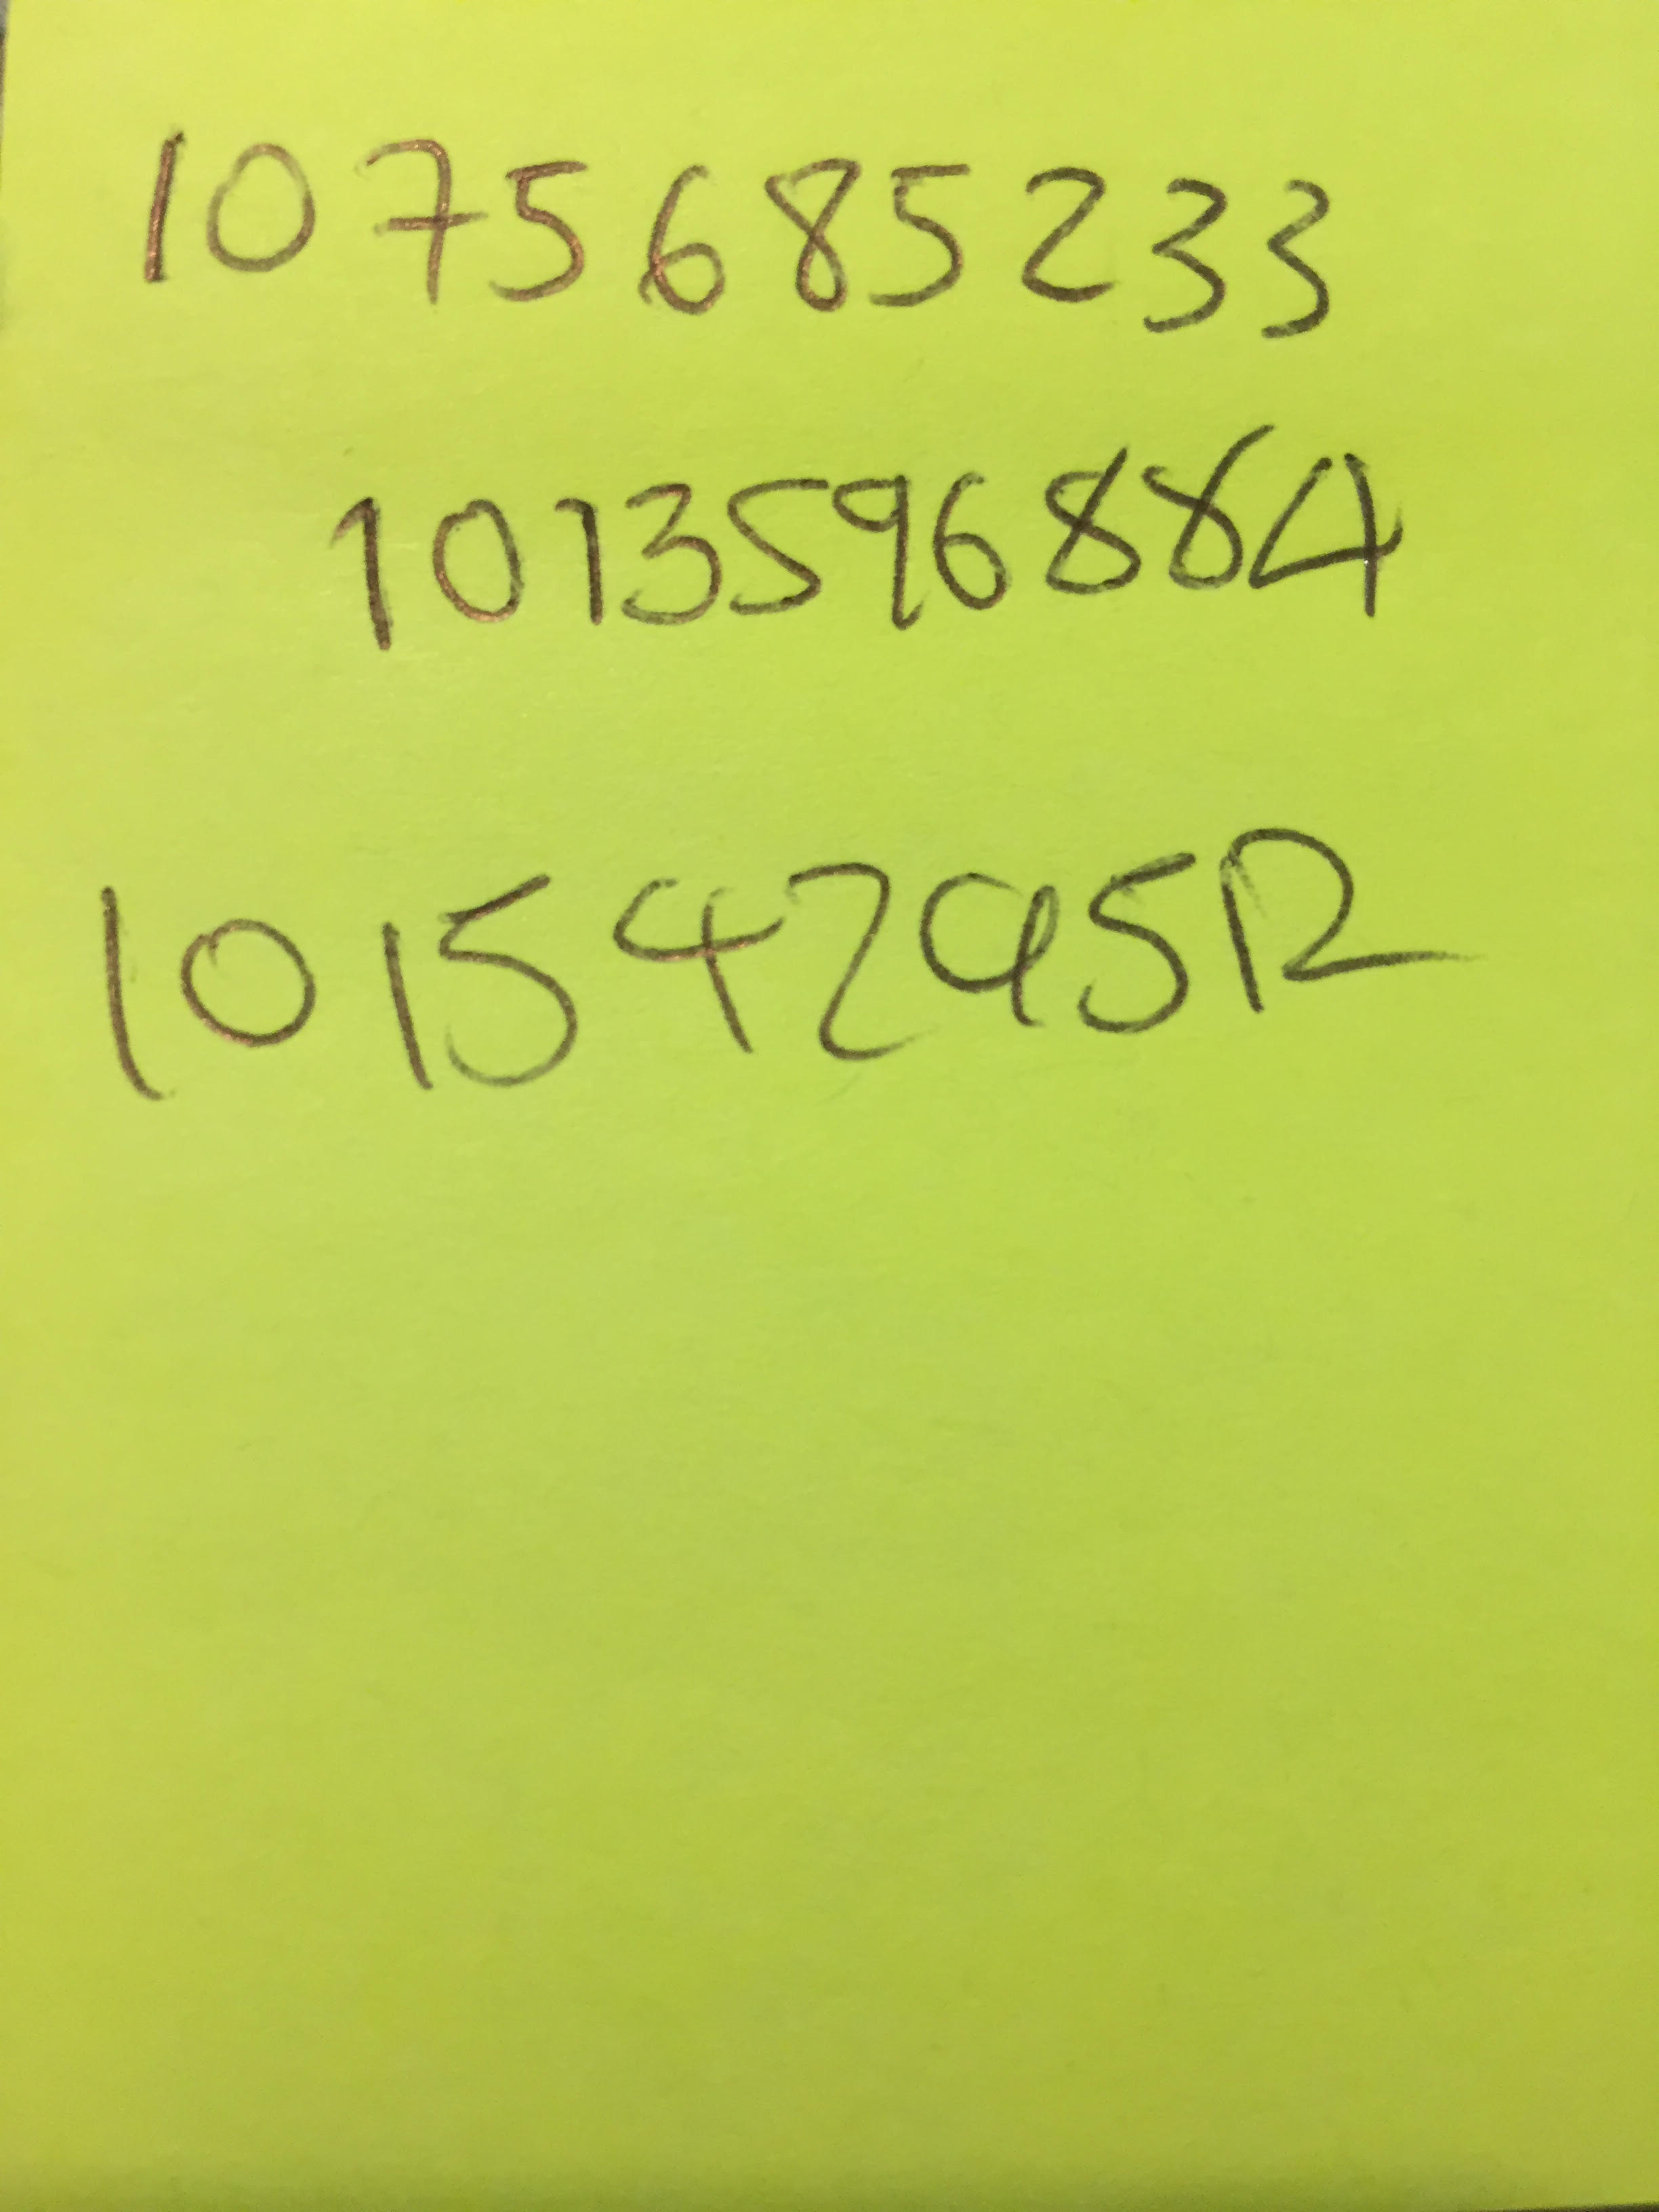 1075685233
1013596884
1015429512